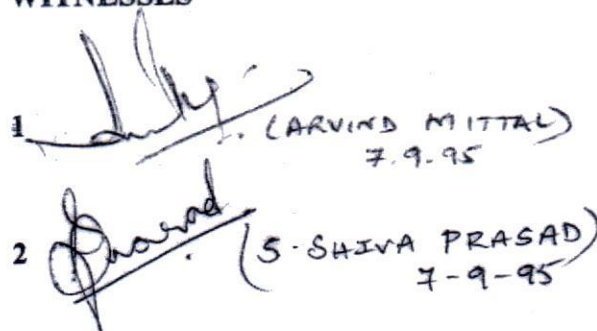 WITNESSES
1 (ARVIND MITTAL)
7.9.95
2 Prasad (S. SHIVA PRASAD)
7-9-95